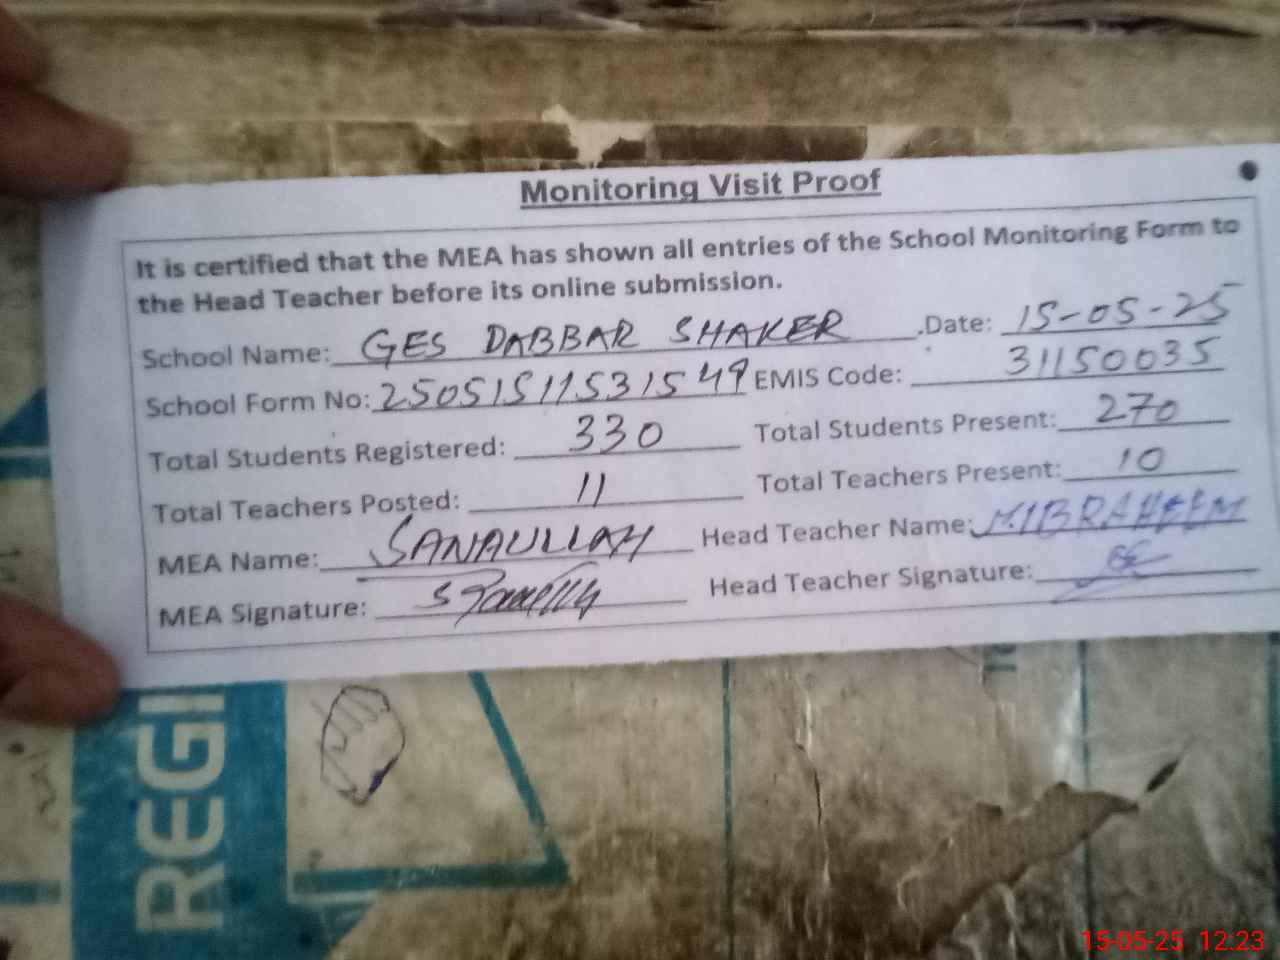 Monitoring Visit Proof
It is certified that the MEA has shown all entries of the School Monitoring Form to
the Head Teacher before its online submission.
School Name: GES DABBAR SHAKER .Date: 15-05-25
School Form No: 25051511531549 EMIS Code: 31150035
Total Students Registered: 330 Total Students Present: 270
Total Teachers Posted: 11 Total Teachers Present: 10
MEA Name: SANAULLAH Head Teacher Name: M.IBRAHEEM
MEA Signature: Head Teacher Signature:
REGI
15-05-25 12:23